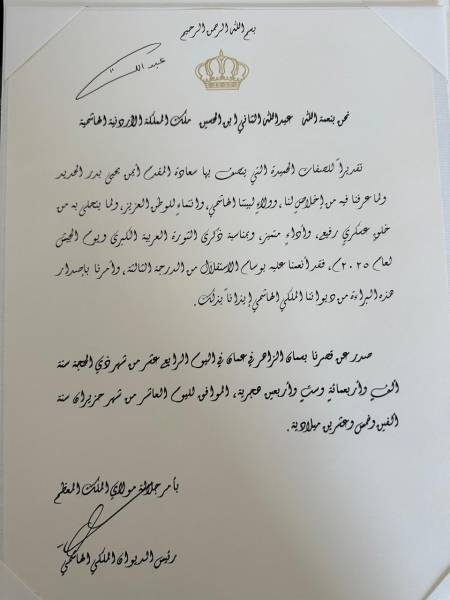 بسم الله الرحمن الرحيم
عبدالله
نحن بنعمة الله عبدالله الثاني ابن الحسين ملك المملكة الأردنية الهاشمية
تقديراً للصفات الحميدة التي يتصف بها سعادة المقدم أيمن يحيى بدر الحديد
ولما عرفنا فيه من إخلاصٍ لنا، وولاءٍ لبيتنا الهاشمي، وانتماءٍ للوطن العزيز، ولما يتحلى به من
خلقٍ عسكري رفيع، وأداءٍ متميز، وبمناسبة ذكرى الثورة العربية الكبرى ويوم الجيش
لعام ٢٠٢٥م، فقد أنعمنا عليه بوسام الاستقلال من الدرجة الثالثة، وأمرنا بإصدار
هذه البراءة من ديواننا الملكي الهاشمي إيذاناً بذلك.
صدر عن قصرنا بسمان الزاهر في عمان في اليوم الرابع عشر من شهر ذي الحجة سنة
ألفٍ وأربعمائة وستٍ وأربعين هجرية، الموافق لليوم العاشر من شهر حزيران سنة
ألفين وخمسٍ وعشرين ميلادية.
بأمر جلالة مولاي الملك المعظم
رئيس الديوان الملكي الهاشمي